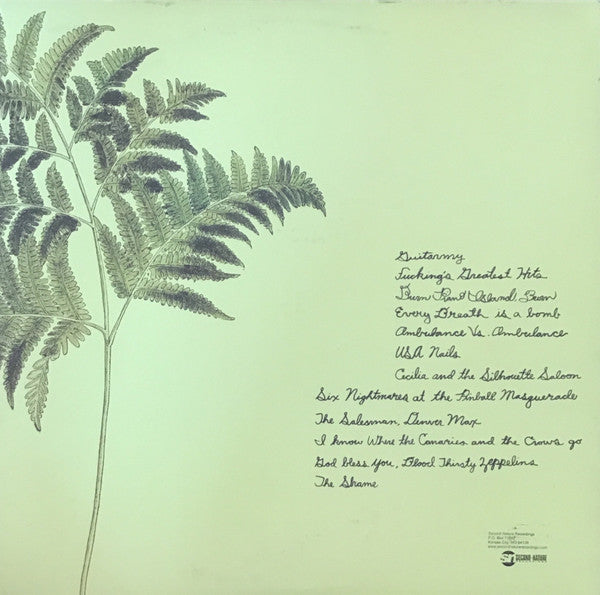 Guitarmy
Fucking's Greatest Hits
Burn Rhode Island, Burn
Every Breath is a bomb
Ambulance Vs. Ambulance
USA Nails
Cecilia and the Silhouette Saloon
Six Nightmares at the Pinball Masquerade
The Salesman, Denver Max
I know Where the Canaries and the Crows go
God bless you, Blood Thirsty Zeppelins
The Shame
Second Nature Recordings
P.O. Box
Kansas City, MO 64138
www.secondnaturerecordings.com
SECOND NATURE